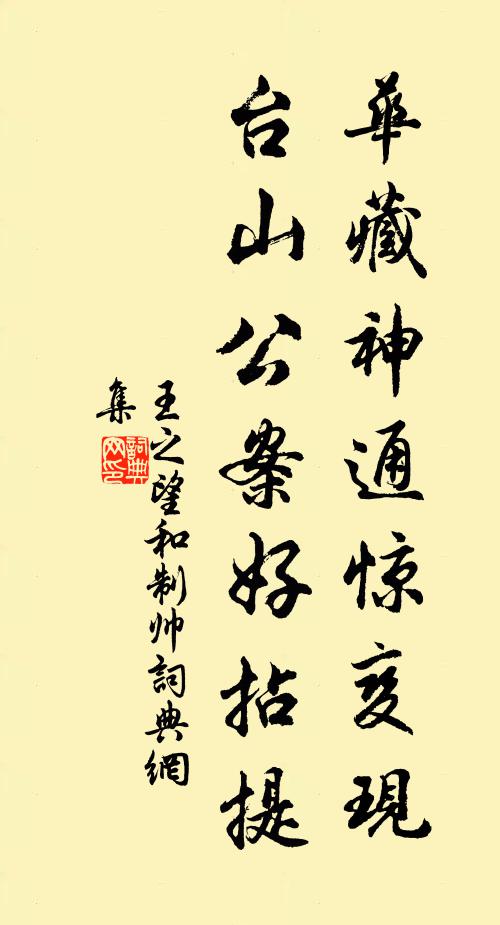 華藏神通惊变現
台山公案好拈提
王之望和制帅詞典網
集
詞典网印